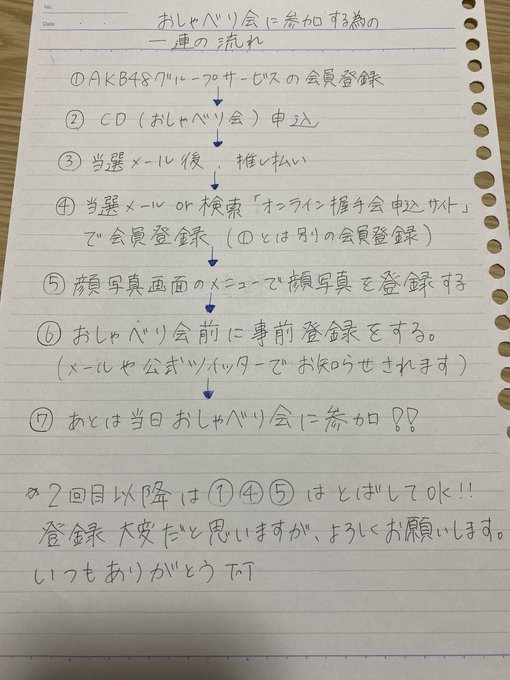 No.
Date
おしゃべり会に参加する為の
一連の流れ
①AKB48グループサービスの会員登録
② CD(おしゃべり会)申込
③ 当選メール後、推し払い
④ 当選メール or 検索「オンライン握手会申込サイト」
で会員登録 (①とは別の会員登録)
⑤ 顔写真画面のメニューで顔写真を登録する
⑥ おしゃべり会前に事前登録をする。
(メールや公式ツイッターでお知らせされます)
⑦ あとは当日おしゃべり会に参加!!
*2回目以降は①④⑤はとばしてOK!!
登録大変だと思いますが、よろしくお願いします。
いつもありがとう